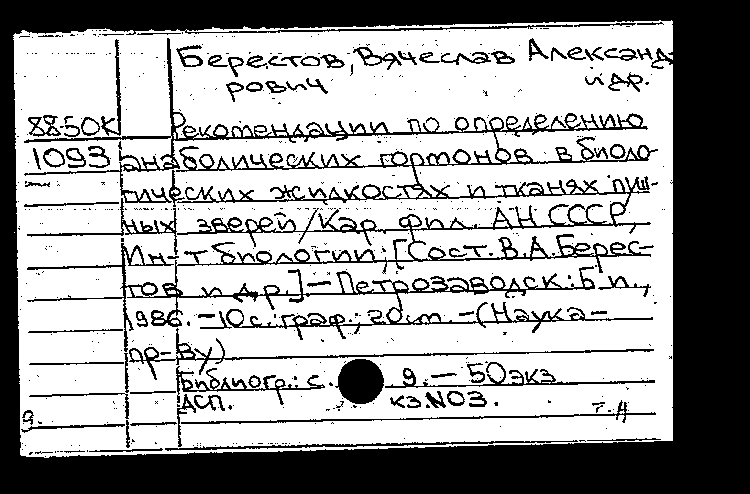 Берестов, Вячеслав Александ-
рович и др.
8850К Рекомендации по определению
1093 анаболических гормонов в биоло-
гических жидкостях и тканях пуш-
ных зверей / Кар. фил. АН СССР,
Ин-т биологии; [Сост. В.А. Берес-
тов и др.] - Петрозаводск: Б.и.,
1986. - 10 с.: граф.; 20 т. - (Наука -
пр-ву)
Библиогр.: с. 9. - 50 экз
ДСП. кз. N03.
9. Т.А